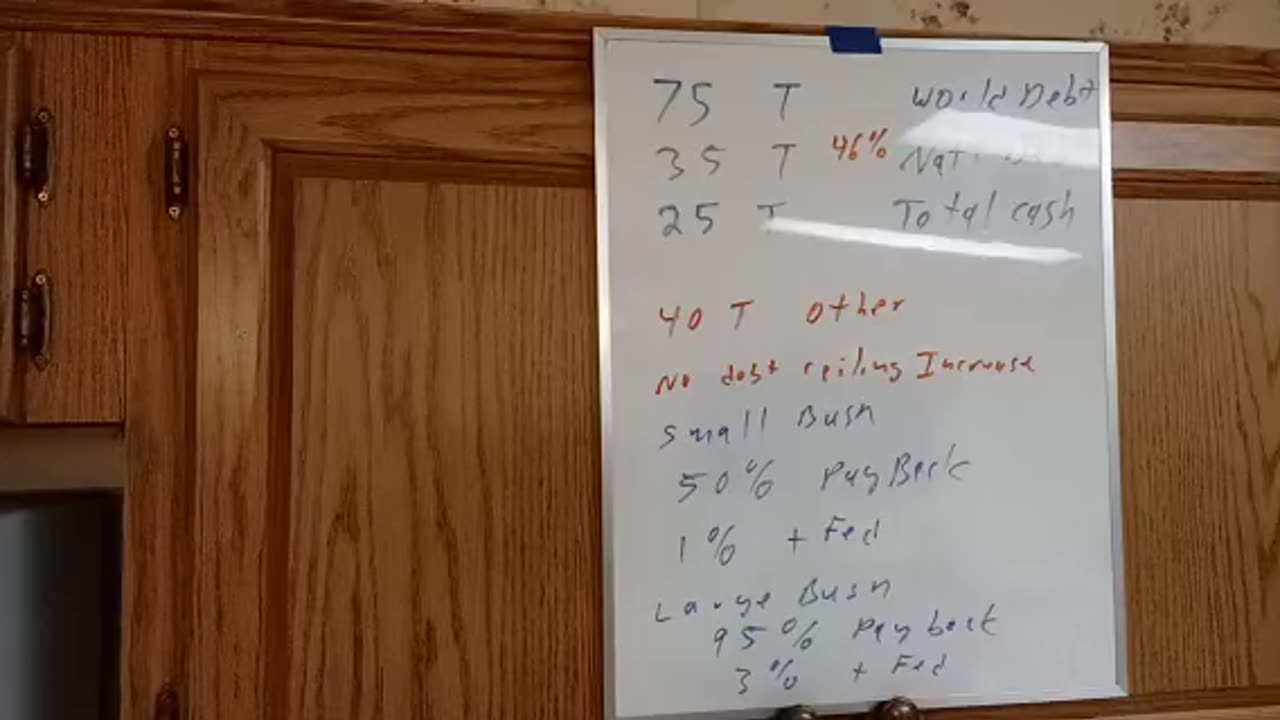 75 T World Debt
35 T 46% Nat.
25 T Total cash
40 T Other
No debt ceiling Increase
Small Busn
50% PayBack
1% + Fed
Large Busn
95% Pay back
3% + Fed